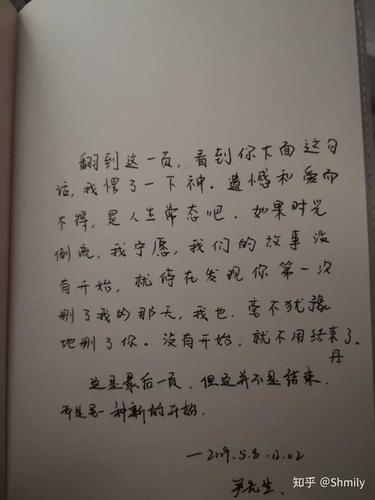 翻到这一页，看到你大面这句
话，我愣了一下神。遗憾和爱而
不得，是人生常态吧。如果时光
倒流，我宁愿，我们的故事没
有开始，就停在发现你第一次
删了我的那天，我也毫不犹豫
地删了你。没有开始，就不用结束了。
丹
这是最后一页，但这并不是结束，
而是另一种新的开始。
尹先生.
知乎 @Shmily